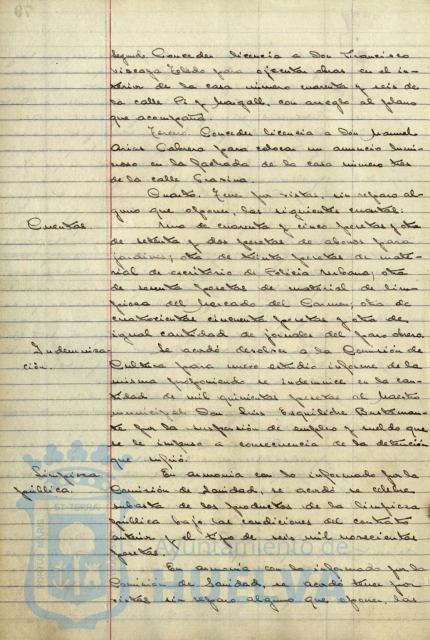 Segundo Conceder licencia a Don Francisco
Vizcaya Toledo para ejecutar obras en el in-
terior de la casa número cuarenta y seis de
la calle Pi y Margall, con arreglo al plano
que acompaña.
Tercero Conceder licencia a Don Manuel
Arias Cabrera para colocar un anuncio lumi-
noso en la fachada de la casa número tres
de la calle Gravina.
Cuarto. Tener por vistas, sin reparo al-
guno que oponer, las siguientes cuentas:
Cuentas
Una de cuarenta y cinco pesetas y otra
de setenta y dos pesetas de abonos para
jardines; otra de treinta pesetas de mate-
rial de escritorio de Policia Urbana; otra
de sesenta pesetas de material de lim-
pieza del Mercado del Carmen; otra de
cuatrocientas cincuenta pesetas y otra de
igual cantidad de jornales del paro obrero.
Indemniza-
ción.
Se acordó devolver a la Comisión de
Cultura para nuevo estudio informe de la
misma proponiendo se indemnice en la can-
tidad de mil quinientas pesetas al Maestro
municipal Don Luis
por la suspensión de empleo y sueldo que
se le impuso a consecuencia de la detención
que sufrió.
Limpieza
pública.
En armonia con lo informado por la
Comisión de Sanidad, se acordó se celebre
subasta de los productos de la limpieza
pública bajo las condiciones del contrato
anterior y el tipo de seis mil novecientas
pesetas.
En armonia con lo informado por la
Comisión de Sanidad, se acordó tener por
vistas sin reparo alguno que oponer, las
Ayuntamiento de
HUELVA